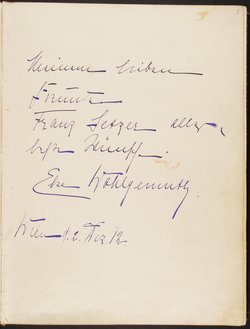 Meinem lieben
Freunde
Franz Setzer aller-
beste Wünsche.
Else Wohlgemuth.
Wien 12. Dez. 12